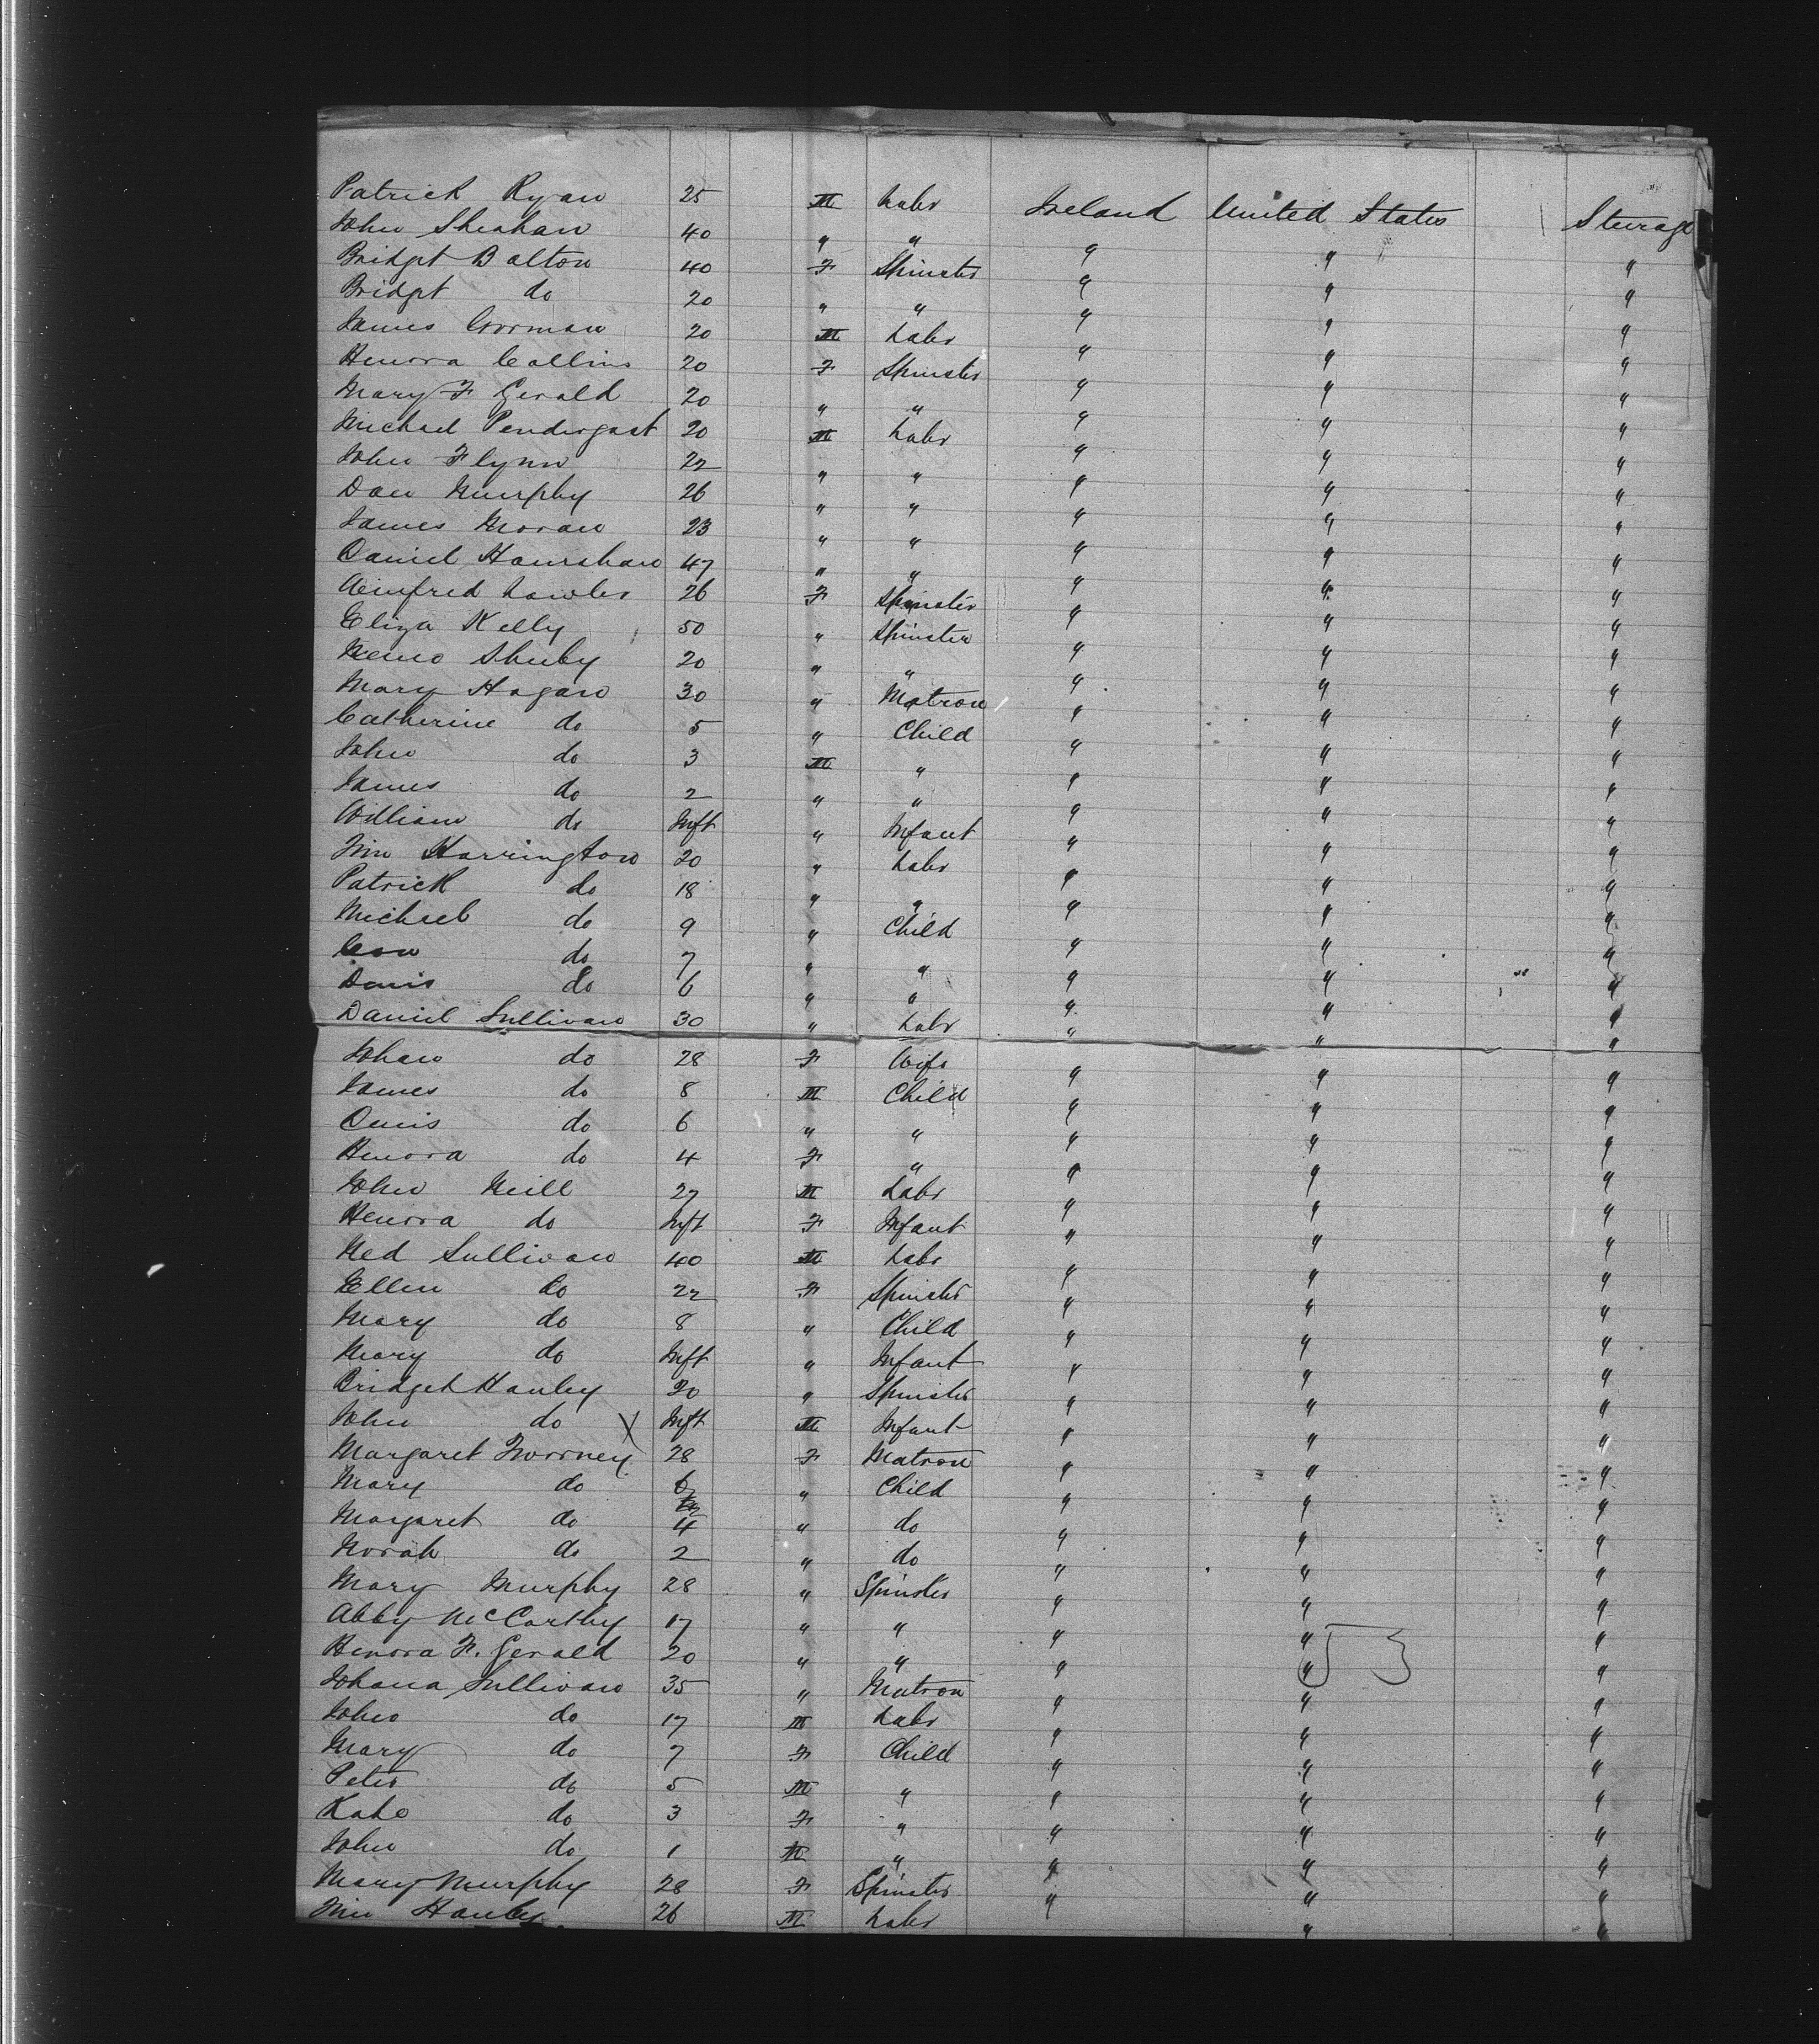 Patrick Ryan 25 M Labr Ireland United States Steerage
John Sheahan 40 " " " " "
Bridget Balton 40 F Spinster " " "
Bridget do 20 " " " " "
James Gorman 20 M Labr " " "
Henora Collins 20 F Spinster " " "
Mary F Gerald 20 " " " " "
Michael Pendergast 20 M Labr " " "
John Flynn 22 " " " " "
Dan Murphy 26 " " " " "
James Moran 23 " " " " "
Daniel Hanrahan 47 " " " " "
Winfred Lawler 26 F Spinster " " "
Eliza Kelly 50 " Spinster " " "
Sheehy 20 " " " " "
Mary Hogan 30 " Matron " " "
Catherine do 5 " Child " " "
John do 3 M " " " "
James do 2 " " " " "
William do Inft " Infant " " "
Tim Harrington 20 " Labr " " "
Patrick do 18 " " " " "
Michael do 9 " Child " " "
Con do 7 " " " " "
Denis do 6 " " " " "
Daniel Sullivan 30 " Labr " " "
Johan do 28 F Wife " " "
James do 8 M Child " " "
Denis do 6 " " " " "
Henora do 4 F " " " "
John Neill 27 M Labr " " "
Henora do Inft F Infant " " "
Ned Sullivan 40 M Labr " " "
Ellen do 22 F Spinster " " "
Mary do 8 " Child " " "
Mary do Inft " Infant " " "
Bridget Hanley 20 " Spinster " " "
John do Inft M Infant " " "
Margaret Twomey 28 F Matron " " "
Mary do 6 " Child " " "
Margaret do 4 " do " " "
Norah do 2 " do " " "
Mary Murphy 28 " Spinster " " "
Abby McCarthy 17 " " " " "
Henora F. Gerald 20 " " " " "
Johana Sullivan 35 " Matron " " "
John do 17 M Labr " " "
Mary do 7 F Child " " "
Peter do 5 M " " " "
Kate do 3 F " " " "
John do 1 M " " " "
Mary Murphy 28 F Spinster " " "
Tim Hanley 26 M Labr " "